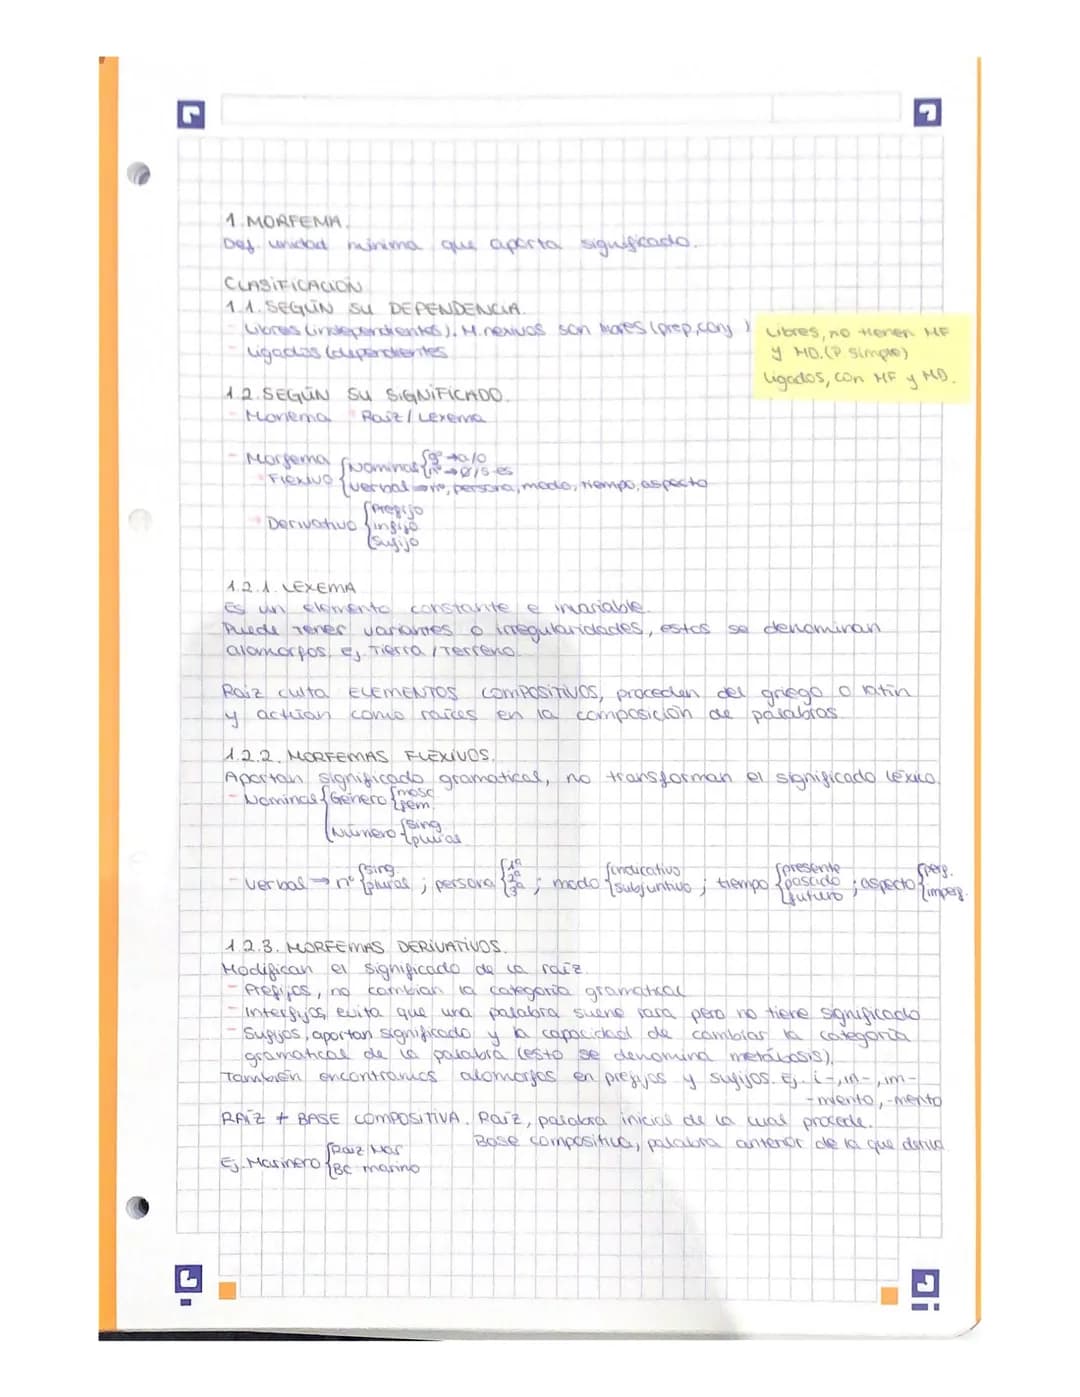 1. MORFEMA.
Def. unidad mínima que aporta significado.
CLASIFICACIÓN
1.1. SEGÚN SU DEPENDENCIA.
- Libres (independientes). M. nexivos son libres (prep, conj)
- Ligadas (dependientes
Libres, no tienen MF
y MD. (P simple)
Ligados, con MF y MD.
1.2. SEGÚN SU SIGNIFICADO.
- Monema Raíz / Lexema
- Morfema
Flexivo { Nominal { gº → a/o
nº → Ø/s-es
verbal → nº, persona, modo, tiempo, aspecto
Derivativo { Prefijo
infijo
Sufijo
1.2.1. LEXEMA
Es un elemento constante e invariable.
Puede tener variantes o irregularidades, estos se denominan
alomorfos. Ej. Tierra / Terreno.
Raíz culta ELEMENTOS COMPOSITIVOS, proceden del griego o latín
y actúan como raíces en la composición de palabras.
1.2.2. MORFEMAS FLEXIVOS.
Aportan significado gramatical, no transforman el significado léxico.
- Nominal { Género { masc
fem.
Número { sing
plural
- Verbal → nº { sing. plural ; persona { 1ª 2ª 3ª ; modo { indicativo subjuntivo ; tiempo { presente pasado futuro ; aspecto { perf. imperf.
1.2.3. MORFEMAS DERIVATIVOS.
Modifican el significado de la raíz.
- Prefijos, no cambian la categoría gramatical
- Interfijos, evita que una palabra suene rara pero no tiene significado
- Sufijos, aportan significado y la capacidad de cambiar la categoría
gramatical de la palabra (esto se denomina metábasis).
También encontramos alomorfos en prefijos y sufijos. Ej. i-, in-, im-
-miento, -mento
RAÍZ + BASE COMPOSITIVA. Raíz, palabra inicial de la cual procede.
Base compositiva, palabra anterior de la que deriva
Ej. Marinero { Raíz Mar
BC marino